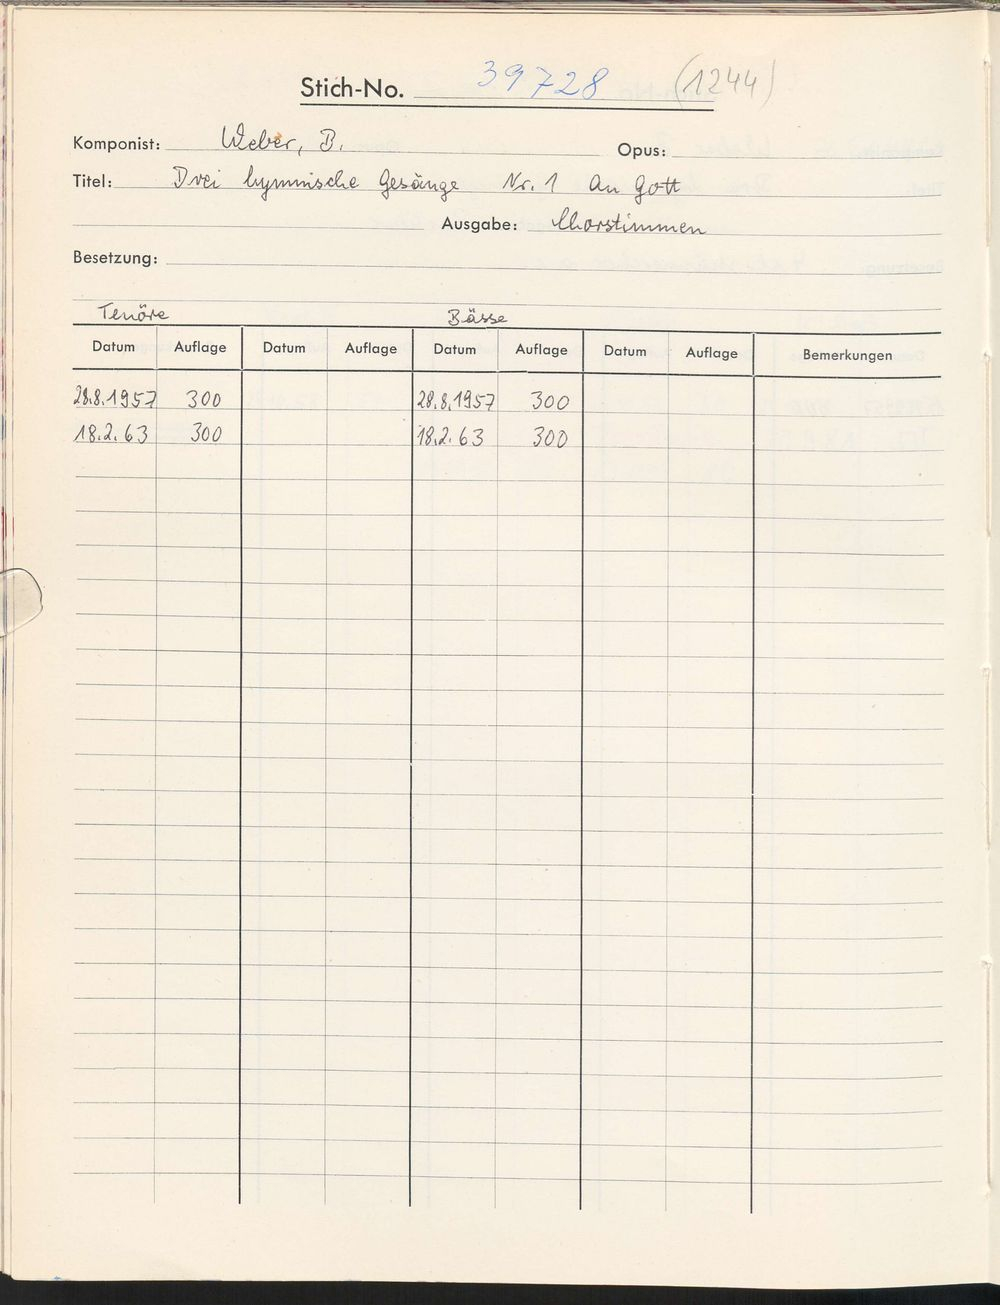 Stich-No. 39728 (1244)
Komponist: Weber, B. Opus:
Titel: Drei hymnische Gesänge Nr. 1 An Gott
Ausgabe: Chorstimmen
Besetzung:
Tenöre Bässe
Datum Auflage Datum Auflage Datum Auflage Datum Auflage Bemerkungen
28.8.1957 300 28.8.1957 300
18.2.63 300 18.2.63 300